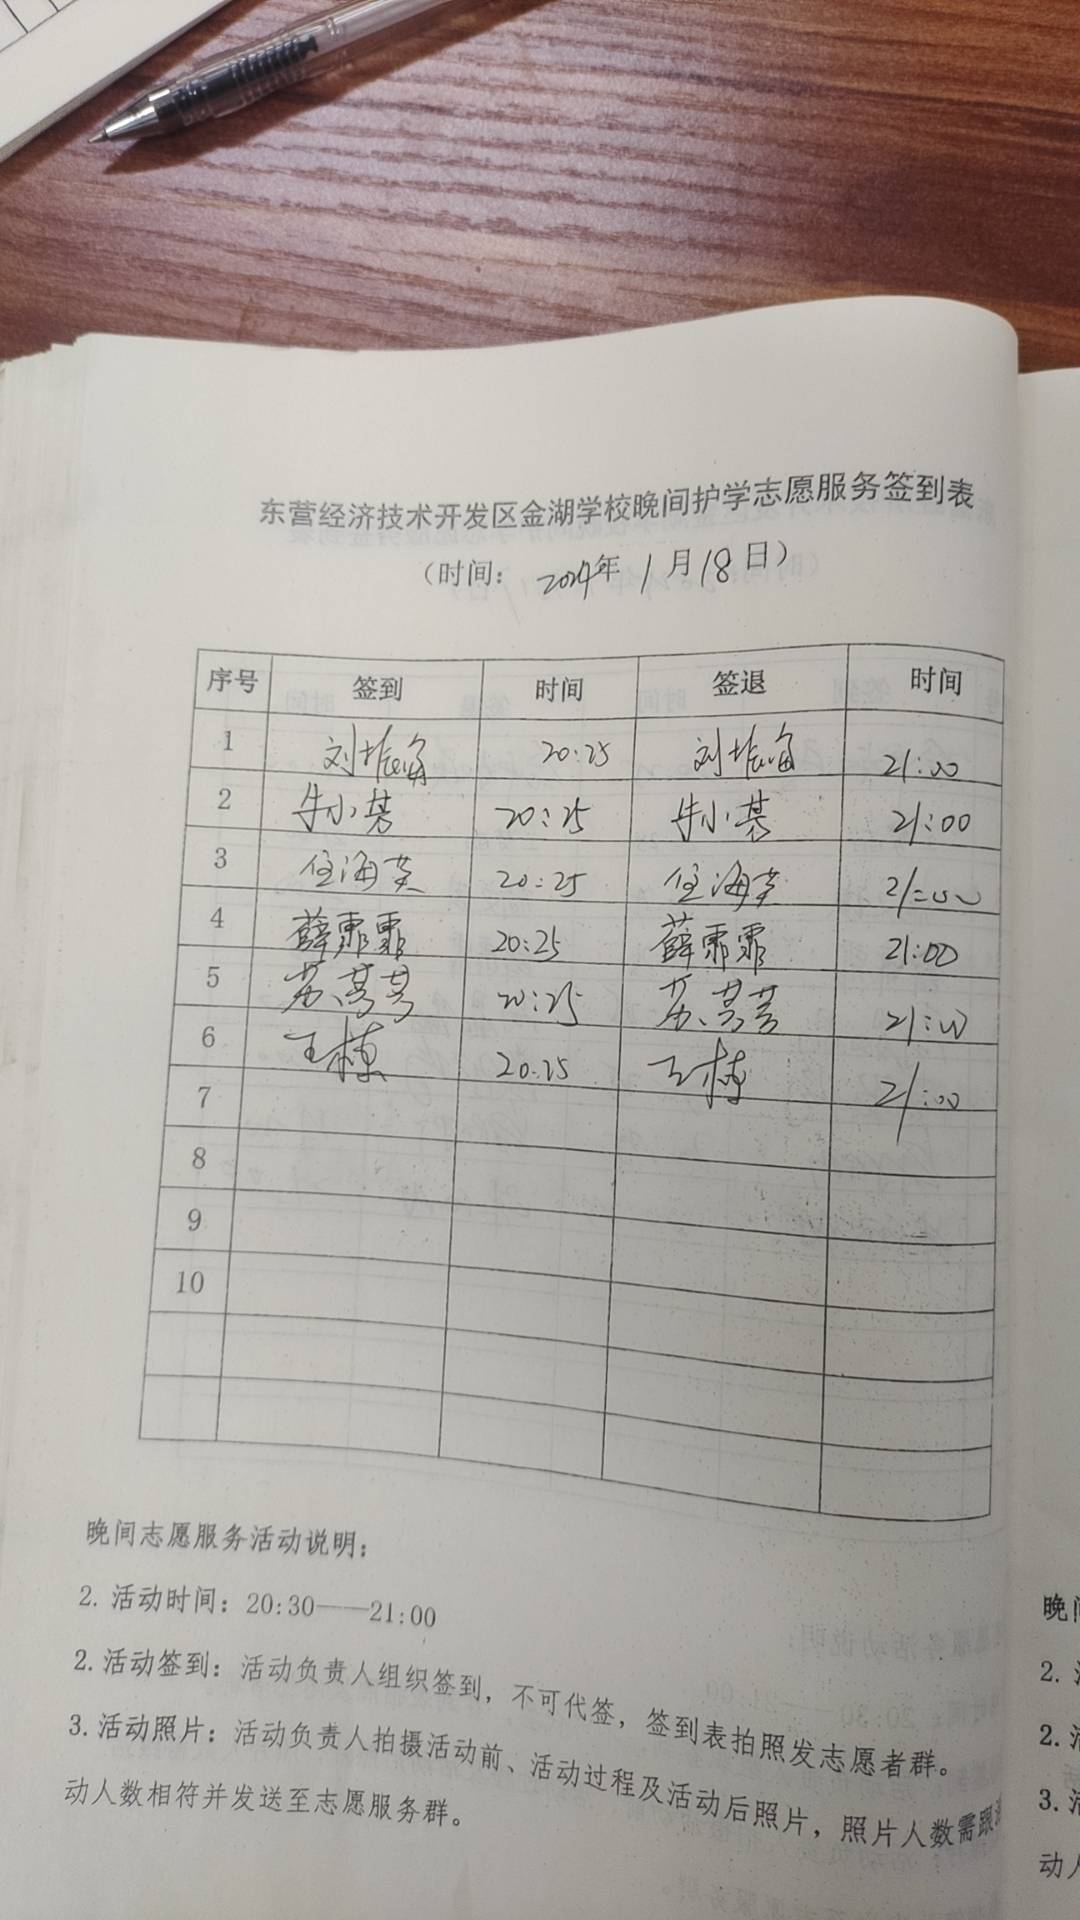 东营经济技术开发区金湖学校晚间护学志愿服务签到表
（时间：2024年1月18日）
序号 签到 时间 签退 时间
1 刘 20:25 刘 21:00
2 牛小 20:25 牛小 21:00
3 任海英 20:25 任海英 21:00
4 薛霏霏 20:25 薛霏霏 21:00
5 苏 20:25 苏 21:00
6 王栋 20:25 王栋 21:00
7
8
9
10
晚间志愿服务活动说明：
2. 活动时间：20:30——21:00
2. 活动签到：活动负责人组织签到，不可代签，签到表拍照发志愿者群。
3. 活动照片：活动负责人拍摄活动前、活动过程及活动后照片，照片人数需跟
动人数相符并发送至志愿服务群。
晚
2.
2.
3.
动